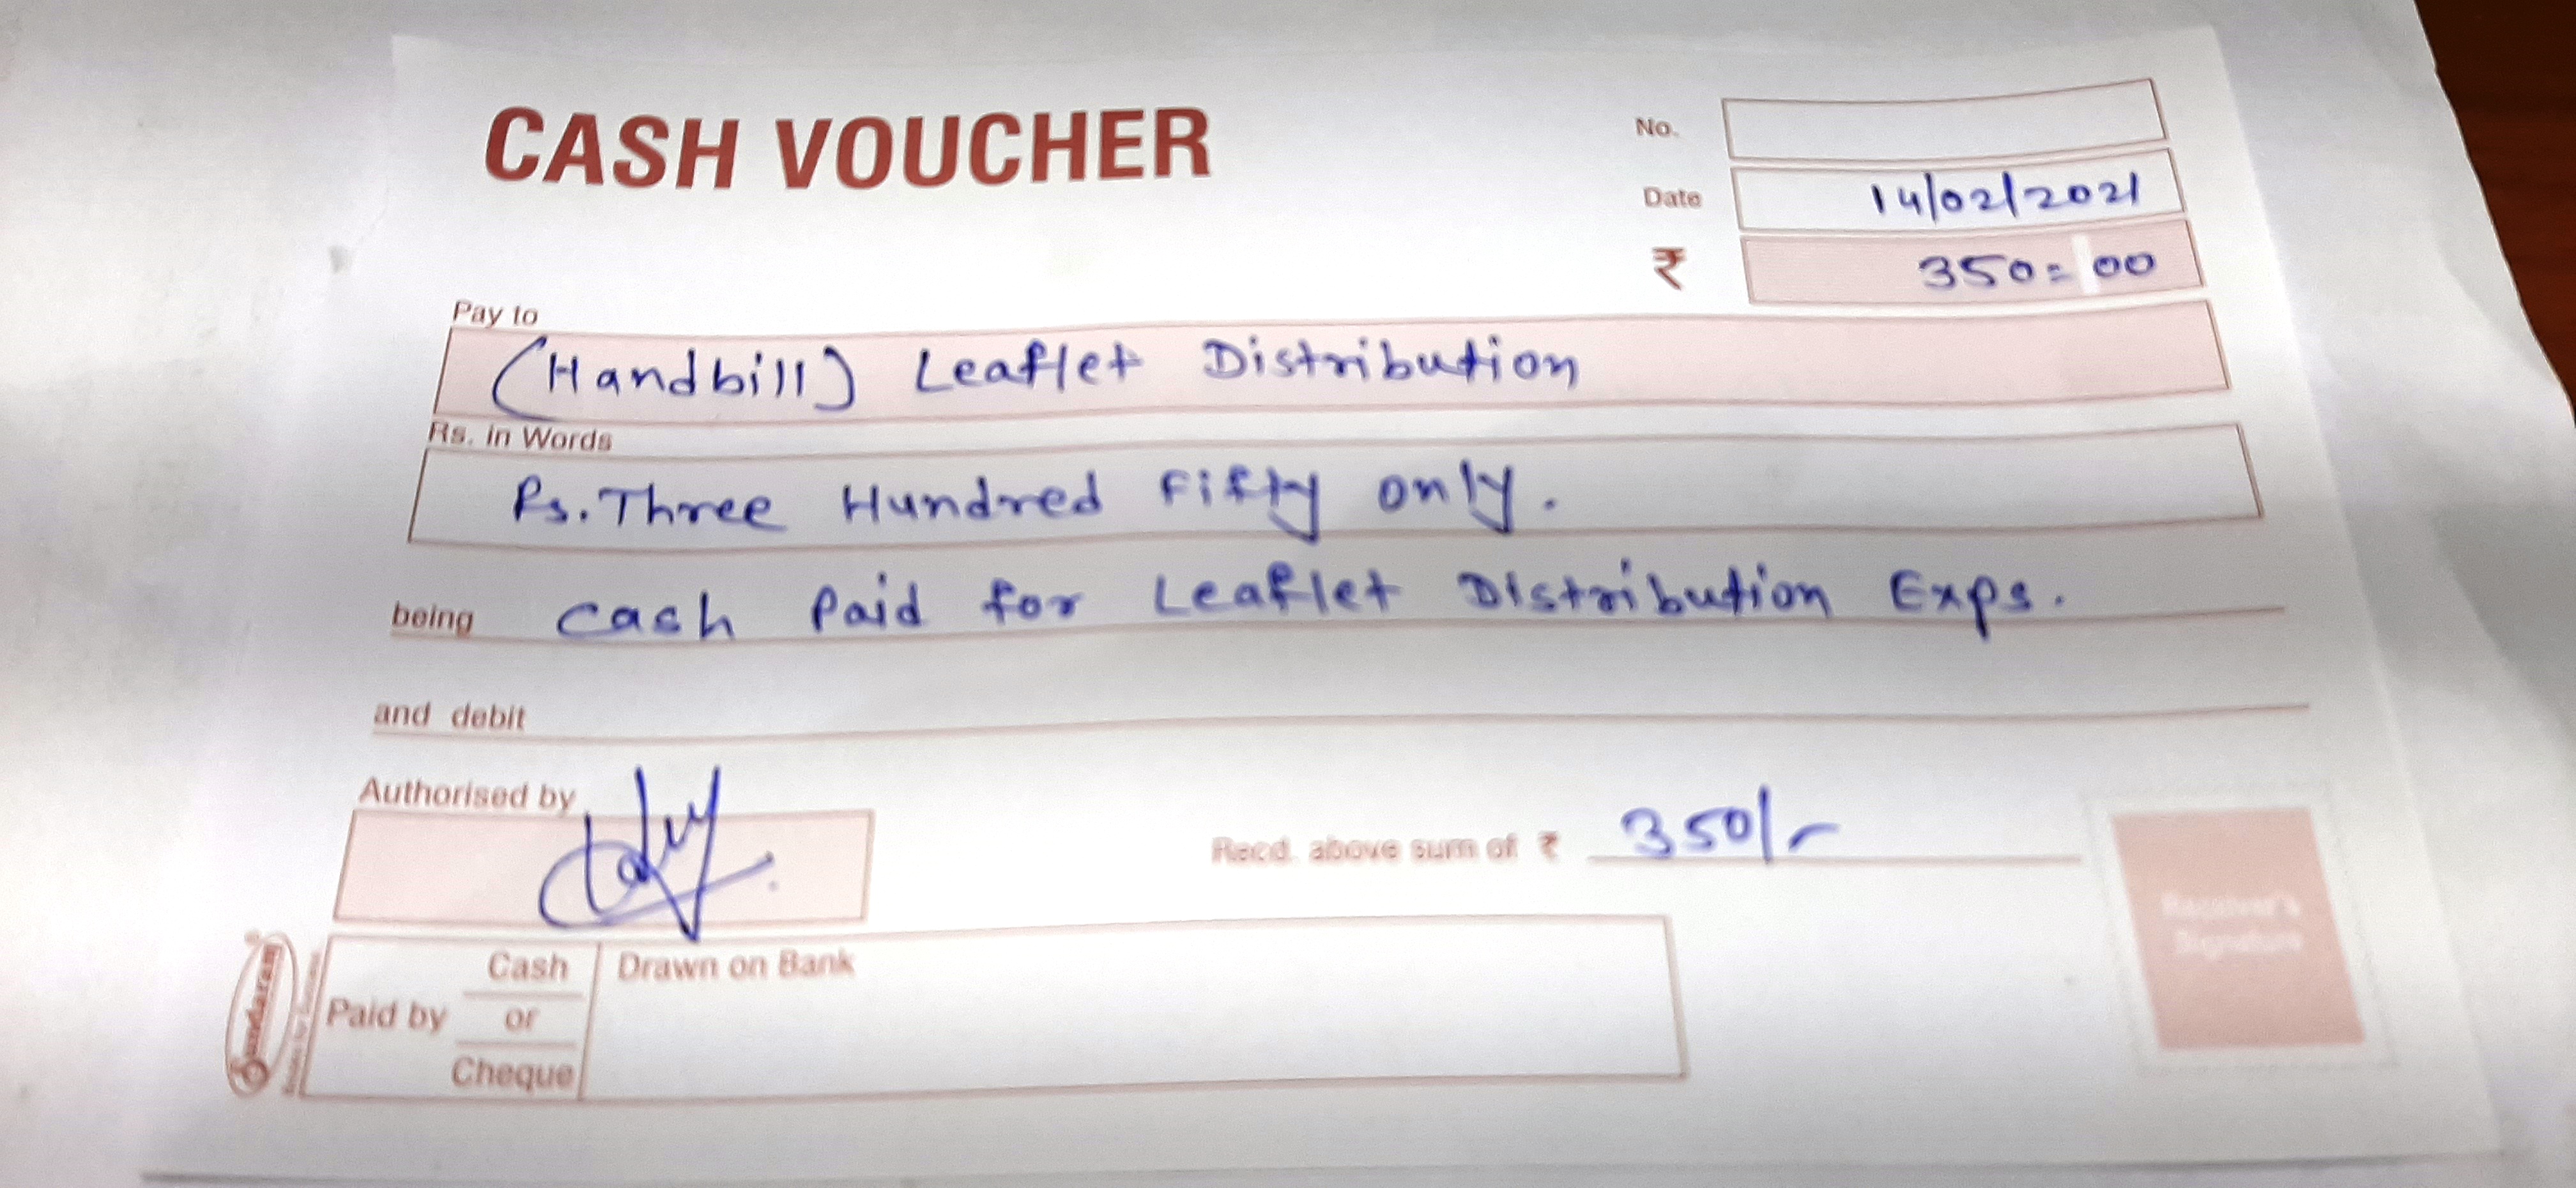 CASH VOUCHER
No.
Date 14/02/2021
₹ 350=00
Pay to
(Handbill) Leaflet Distribution
Rs. in Words
Rs. Three Hundred Fifty only.
being cash Paid for Leaflet Distribution Exps.
and debit
Authorised by
Recd. above sum of ₹ 350/-
Receiver's
Signature
Sundaram
Paid by Cash or Cheque
Drawn on Bank